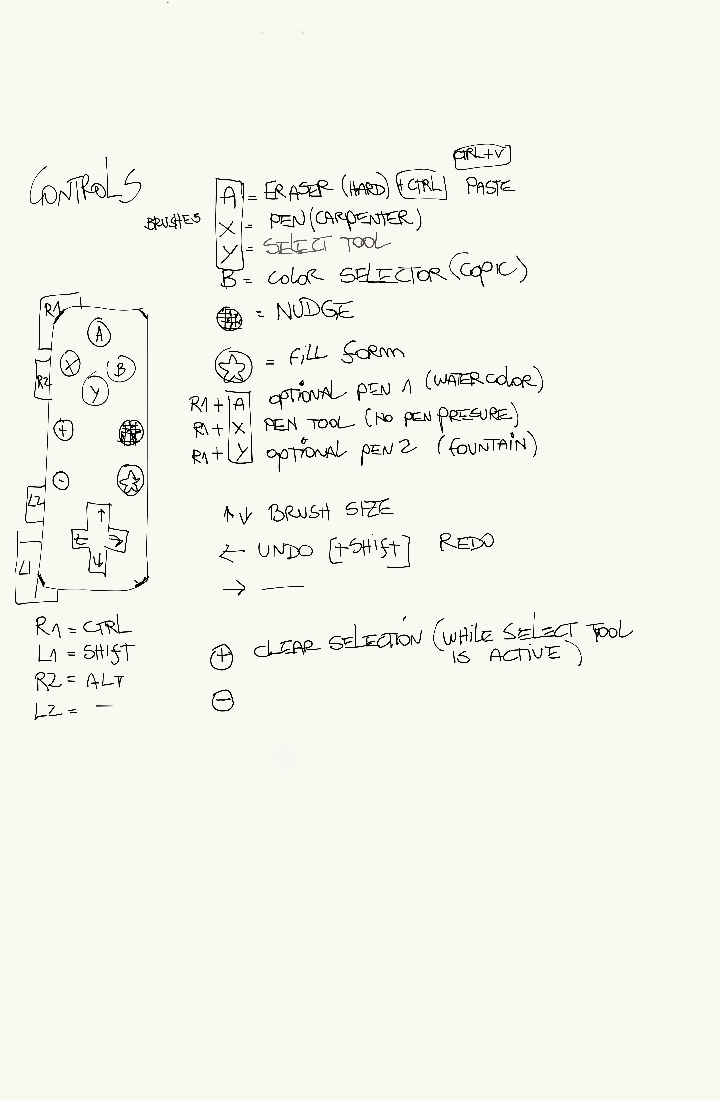 CONTROLS
CTRL+V
A = ERASER (HARD) +CTRL PASTE
BRUSHES
X = PEN (CARPENTER)
Y = SELECT TOOL
B = COLOR SELECTOR (COPIC)
= NUDGE
= FILL FORM
R1 + A OPTIONAL PEN 1 (WATERCOLOR)
R1 + X PEN TOOL (NO PEN PRESURE)
R1 + Y OPTIONAL PEN 2 (FOUNTAIN)
R1
A
X
B
R2
Y
+
-
L2
↑
← →
↓
L1
↑↓ BRUSH SIZE
← UNDO [+SHIFT] REDO
→ ---
R1 = CTRL
L1 = SHIFT
R2 = ALT
L2 = —
+ CLEAR SELECTION (WHILE SELECT TOOL
IS ACTIVE)
-